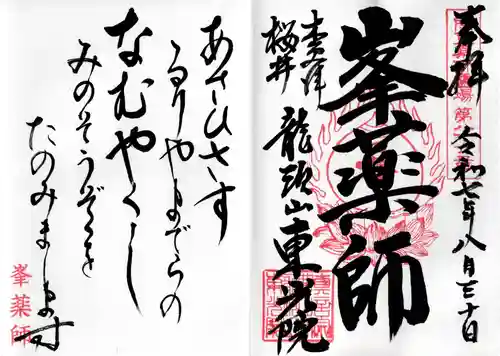 奉拝
令和七年八月三十日
峯薬師
木更津
桜井
龍頭山東光院
あさひさす
るりやまでらの
なむやくし
みのそうぞくを
たのみまします
峯薬師